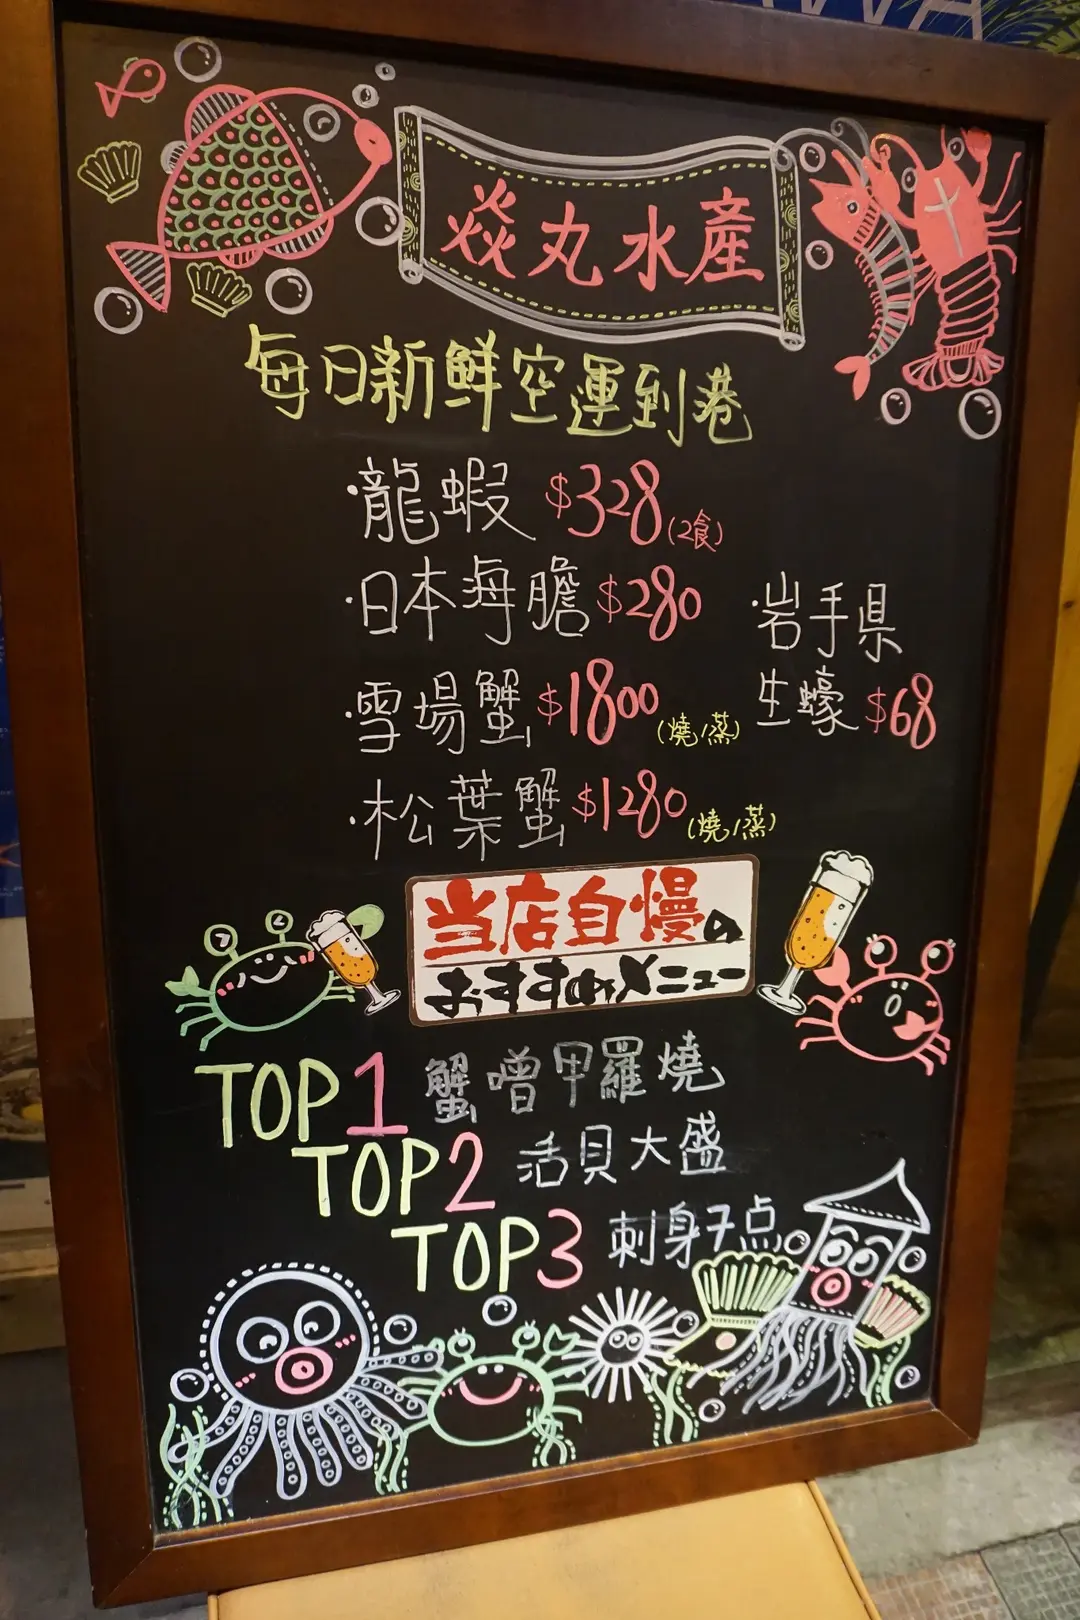 焱丸水產
每日新鮮空運到港
·龍蝦 $328(2食)
·日本海膽 $280
·岩手県
生蠔 $68
·雪場蟹 $1800(燒/蒸)
·松葉蟹 $1280(燒/蒸)
当店自慢の
おすすめメニュー
TOP1 蟹噌甲羅燒
TOP2 活貝大盛
TOP3 刺身7点